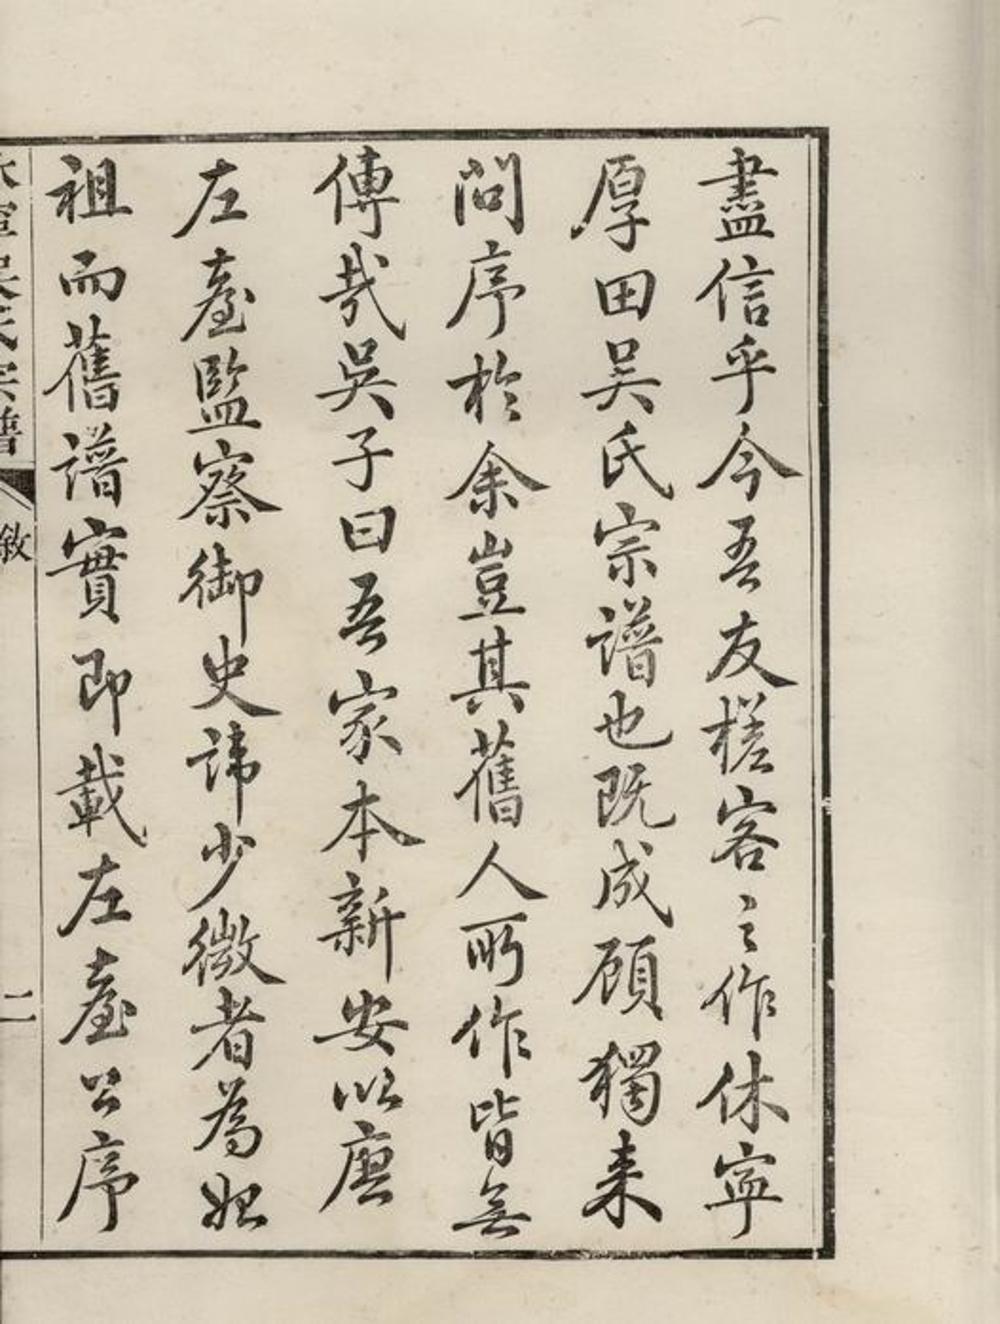 盡信乎今吾友槎客之作休寧
厚田吴氏宗譜也既成顧獨来
問序於余豈其舊人所作皆無
傳哉吴子曰吾家本新安以唐
左臺監察御史諱少微者為始
祖而舊譜實即載左臺公序
休寧吳氏宗譜
敘
二